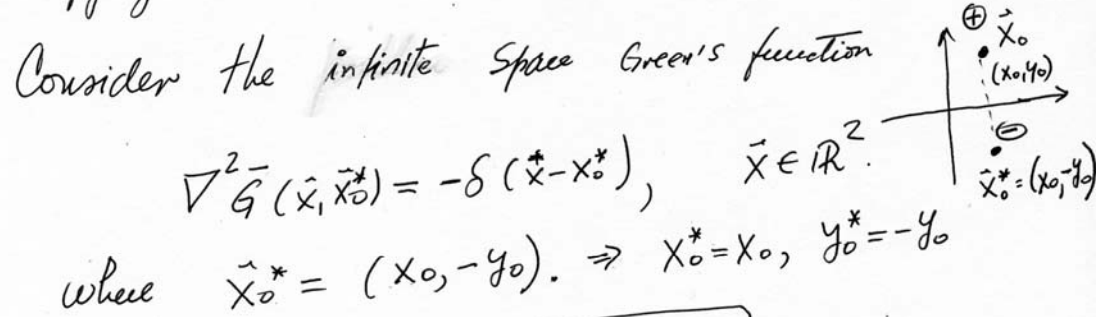 Consider the infinite space Green's function
⊕ x⃗₀
(x₀,y₀)
∇²Ḡ(x⃗, x⃗₀*) = -δ(x⃗-x₀*), x⃗ ∈ ℝ².
⊖
x⃗₀* = (x₀,-y₀)
where x⃗₀* = (x₀, -y₀). ⇒ x₀* = x₀, y₀* = -y₀